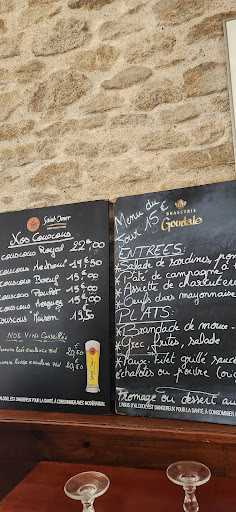 Saint-Omer
Nos Couscous
Couscous Royal 22€00
Couscous Méchoui 19€50
Couscous Boeuf 15€00
Couscous Poulet 15€00
Couscous Merguez 15€00
Couscous Maison 19€50
NOS Vins Conseillés
20€50
20€50
L'ABUS D'ALCOOL EST DANGEREUX POUR LA SANTÉ, À CONSOMMER AVEC MODÉRATION.
BRASSERIE
Goudale
Menu du
Jour 15€
ENTREES:
*Salade de sardines
*Pâté de campagne
*Assiette de charcuterie
*Oeufs durs mayonnaise
PLATS:
*Brandade de morue
frites, salade
Filet grillé sauce
échalotes ou poivre
Fromage ou dessert au
L'ABUS D'ALCOOL EST DANGEREUX POUR LA SANTÉ, À CONSOMMER